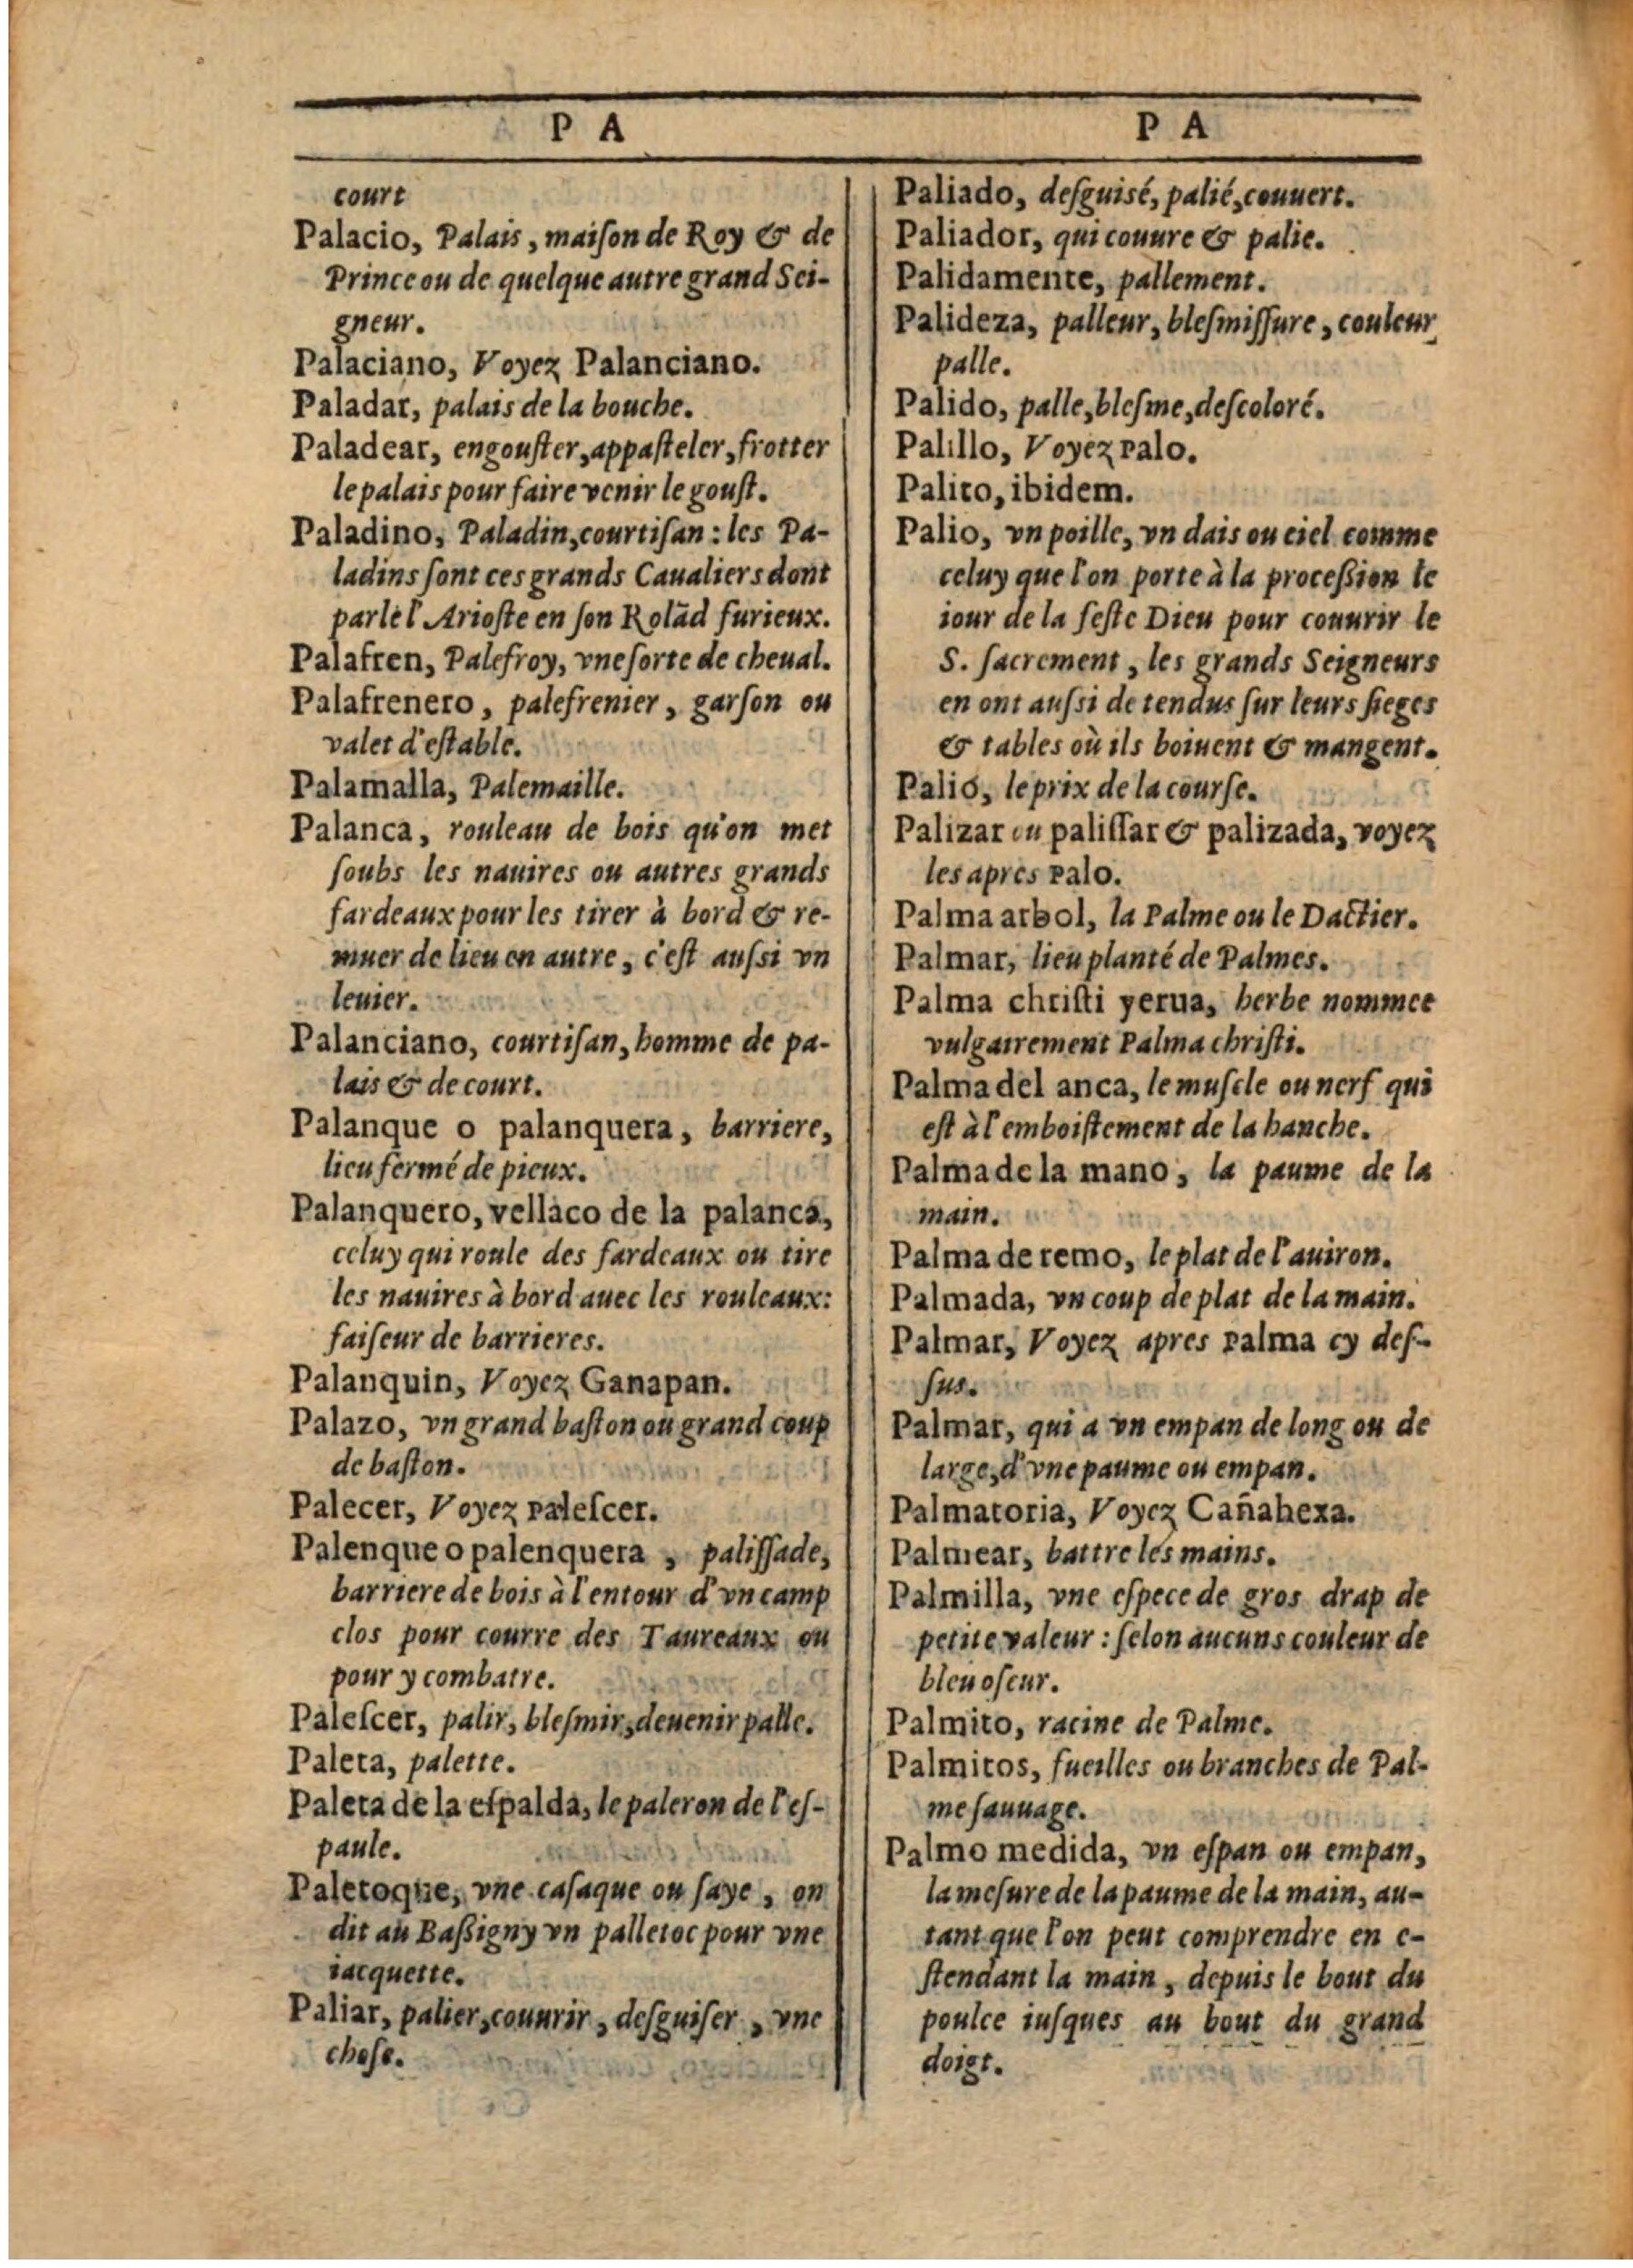 P A
court
Palacio, Palais, maiſon de Roy & de
Prince ou de quelque autre grand Sei-
gneur.
Palaciano, Voyez Palanciano.
Paladar, palais de la bouche.
Paladear, engouſter, appaſteler, frotter
le palais pour faire venir le gouſt.
Paladino, Paladin, courtiſan : les Pa-
ladins ſont ces grands Caualiers dont
parle l'Arioſte en ſon Rolãd furieux.
Palafren, Palefroy, vne ſorte de cheual.
Palafrenero, palefrenier, garſon ou
valet d'eſtable.
Palamalla, Palemaille.
Palanca, rouleau de bois qu'on met
ſoubs les nauires ou autres grands
fardeaux pour les tirer à bord & re-
muer de lieu en autre, c'eſt auſsi vn
leuier.
Palanciano, courtiſan, homme de pa-
lais & de court.
Palanque o palanquera, barriere,
lieu fermé de pieux.
Palanquero, vellaco de la palanca,
celuy qui roule des fardeaux ou tire
les nauires à bord auec les rouleaux:
faiſeur de barrieres.
Palanquin, Voyez Ganapan.
Palazo, vn grand baſton ou grand coup
de baſton.
Palecer, Voyez paleſcer.
Palenque o palenquera, paliſſade,
barriere de bois à l'entour d'vn camp
clos pour courre des Taureaux ou
pour y combatre.
Paleſcer, palir, bleſmir, deuenir palle.
Paleta, palette.
Paleta de la eſpalda, le paleron de l'eſ-
paule.
Paletoque, vne caſaque ou ſaye, on
dit au Baſsigny vn palletoc pour vne
iacquette.
Paliar, palier, couurir, deſguiſer, vne
choſe.
P A
Paliado, deſguisé, palié, couuert.
Paliador, qui couure & palie.
Palidamente, pallement.
Palideza, palleur, bleſmiſſure, couleur
palle.
Palido, palle, bleſme, deſcoloré.
Palillo, Voyez palo.
Palito, ibidem.
Palio, vn poille, vn dais ou ciel comme
celuy que l'on porte à la proceſsion le
iour de la feſte Dieu pour couurir le
S. ſacrement, les grands Seigneurs
en ont auſsi de tendus ſur leurs ſieges
& tables où ils boiuent & mangent.
Palio, le prix de la courſe.
Palizar ou paliſſar & palizada, voyez
les apres palo.
Palma arbol, la Palme ou le Dactier.
Palmar, lieu planté de Palmes.
Palma chriſti yerua, herbe nommee
vulgairement Palma chriſti.
Palma del anca, le muſcle ou nerf qui
eſt à l'emboiſtement de la hanche.
Palma de la mano, la paume de la
main.
Palma de remo, le plat de l'auiron.
Palmada, vn coup de plat de la main.
Palmar, Voyez apres palma cy deſ-
ſus.
Palmar, qui a vn empan de long ou de
large, d'vne paume ou empan.
Palmatoria, Voyez Cañahexa.
Palmear, battre les mains.
Palmilla, vne eſpece de gros drap de
petite valeur : ſelon aucuns couleur de
bleu oſcur.
Palmito, racine de Palme.
Palmitos, fueilles ou branches de Pal-
me ſauuage.
Palmo medida, vn eſpan ou empan,
la meſure de la paume de la main, au-
tant que l'on peut comprendre en e-
ſtendant la main, depuis le bout du
poulce iuſques au bout du grand
doigt.